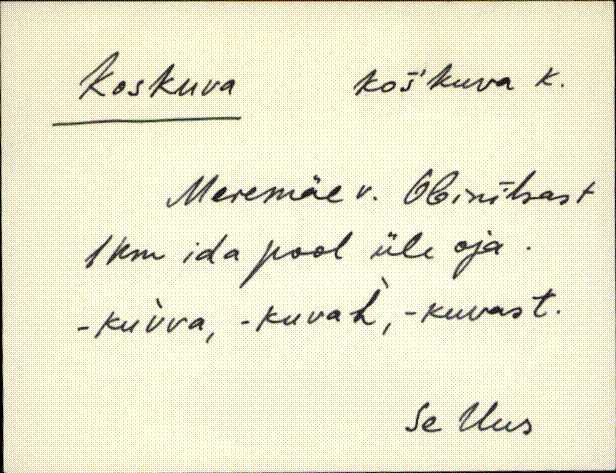 Koskuva koš'kuva k.
Meremäe v. Obinitsast
1 km ida pool üle oja.
-kuvva, -kuvah, -kuvast.
Se Uus